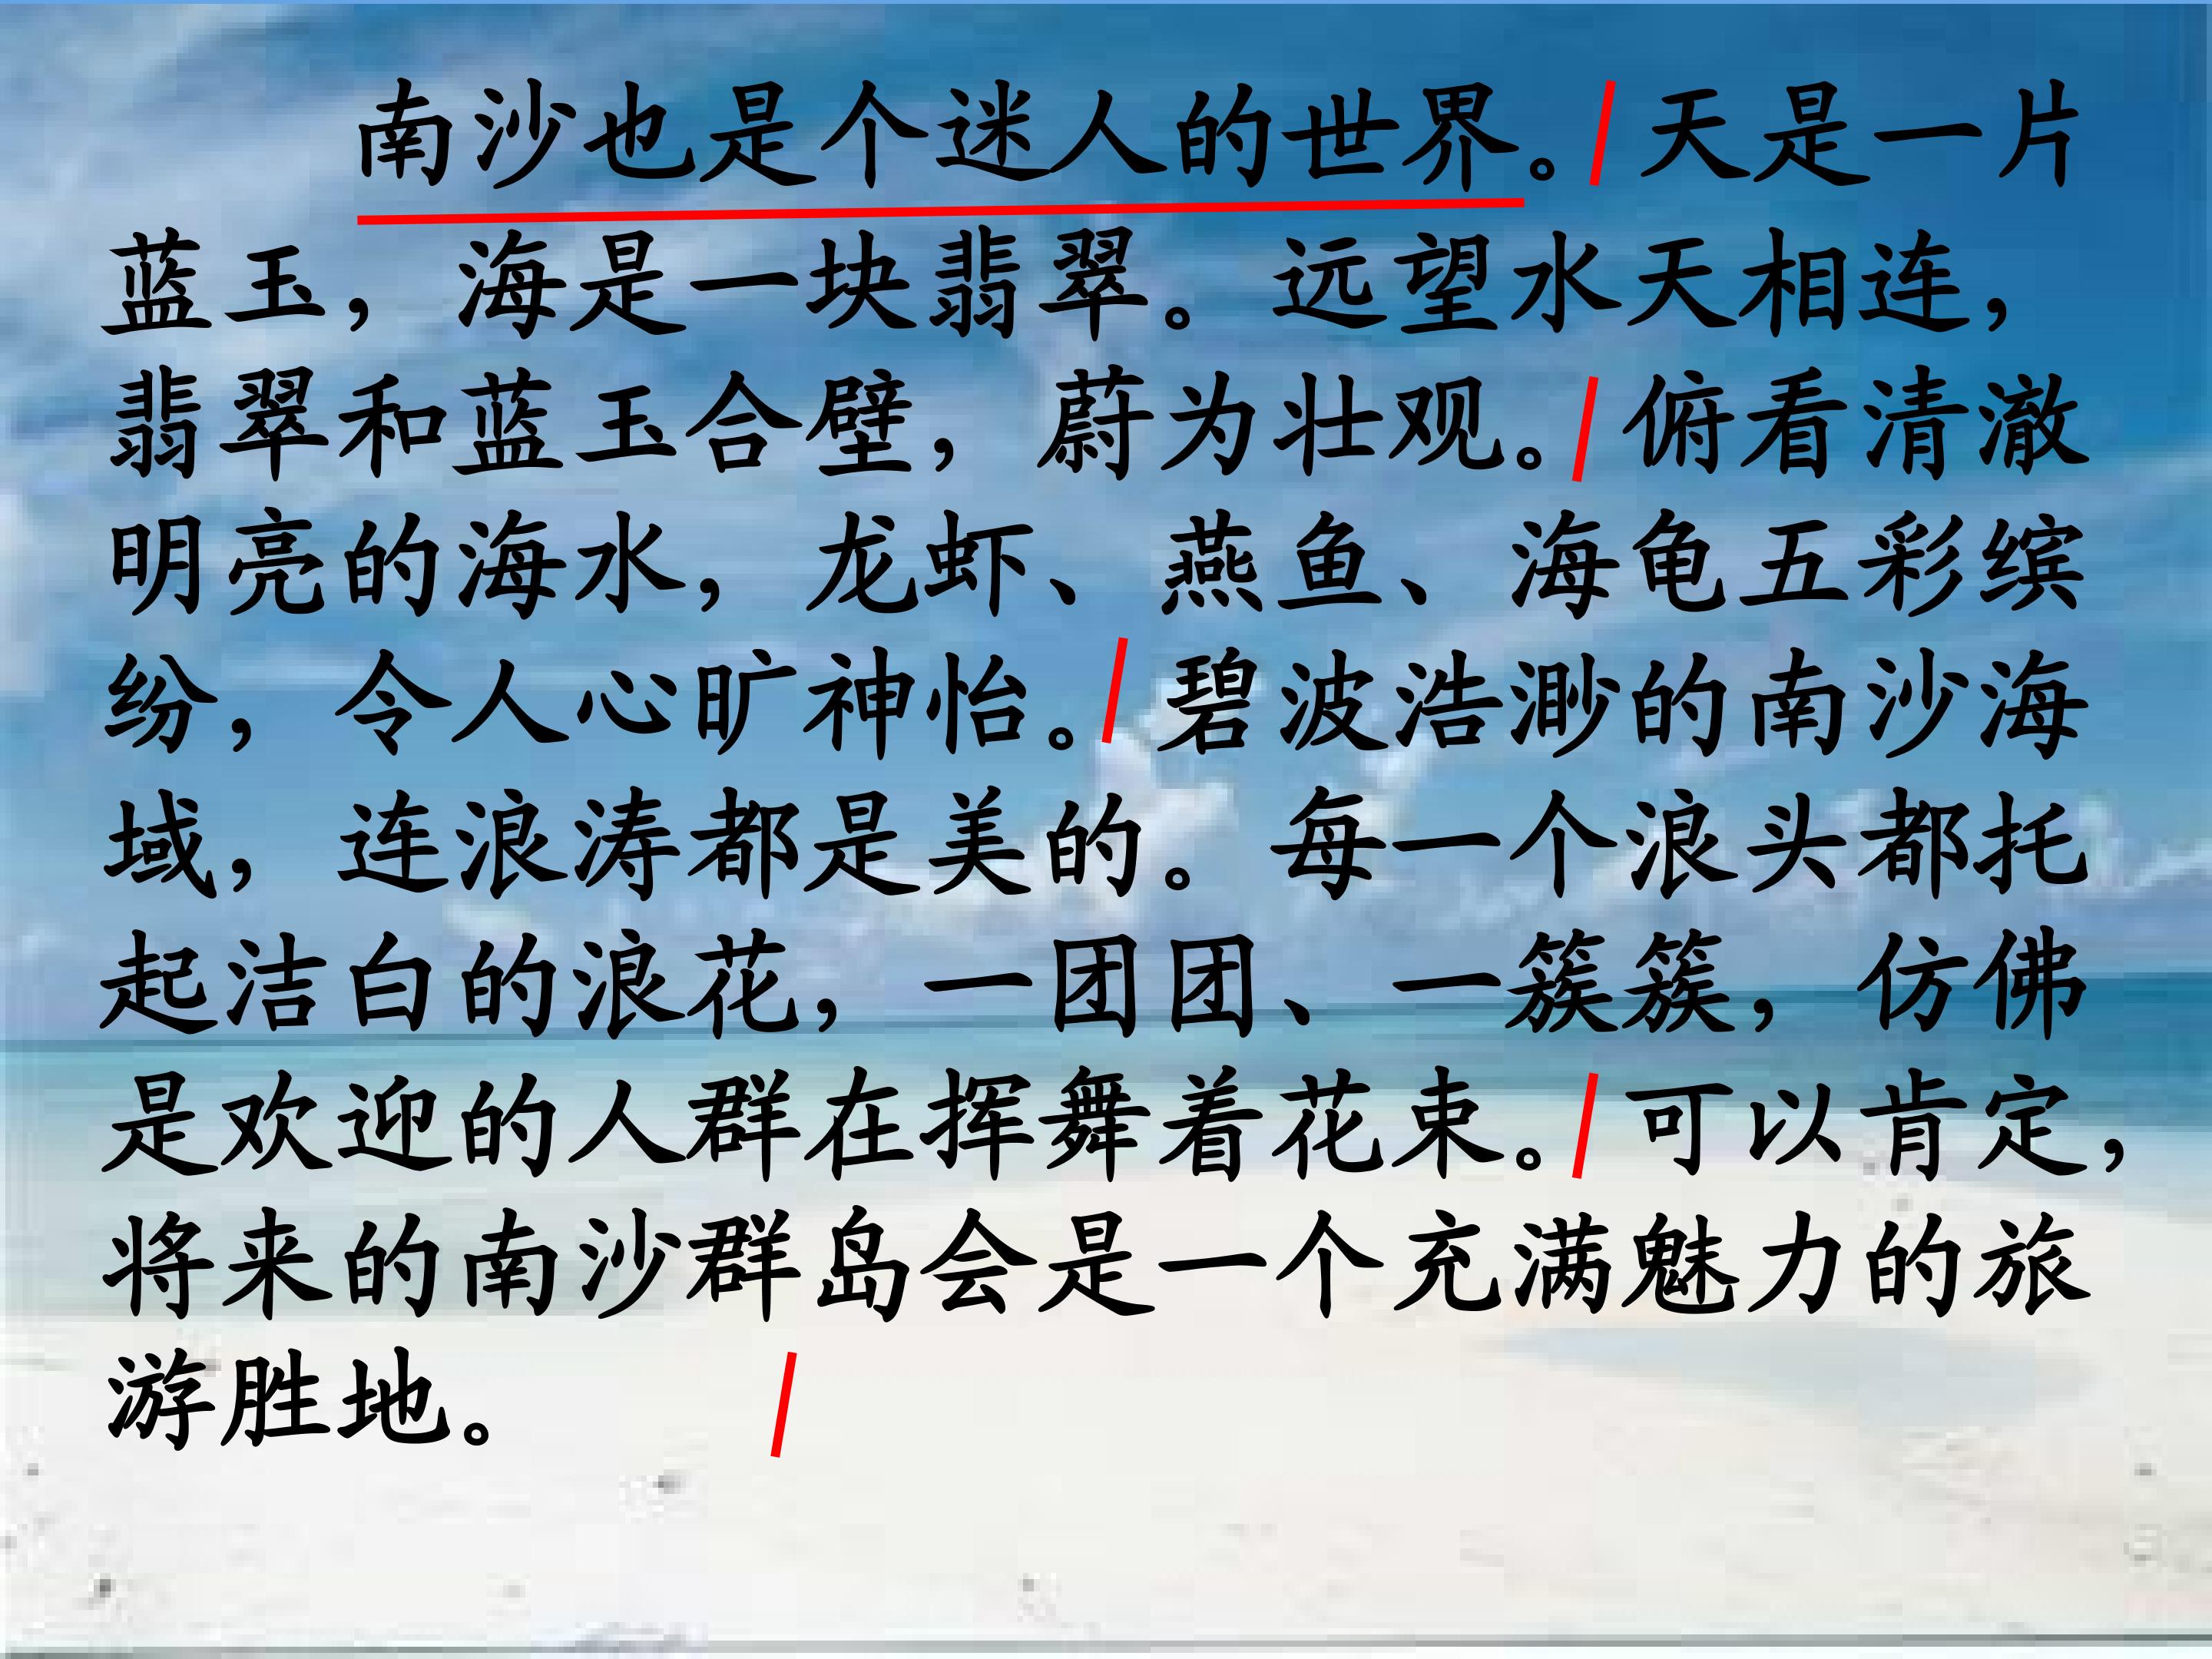 南沙也是个迷人的世界。天是一片
蓝玉，海是一块翡翠。远望水天相连，
翡翠和蓝玉合壁，蔚为壮观。俯看清澈
明亮的海水，龙虾、燕鱼、海龟五彩缤
纷，令人心旷神怡。碧波浩渺的南沙海
域，连浪涛都是美的。每一个浪头都托
起洁白的浪花，一团团、一簇簇，仿佛
是欢迎的人群在挥舞着花束。可以肯定，
将来的南沙群岛会是一个充满魅力的旅
游胜地。